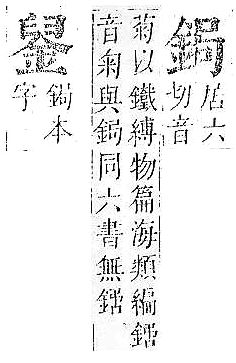 鋦
居六
切音
菊以鐵縛物篇海類編
音匊與鋦同六書無
鋦本
字